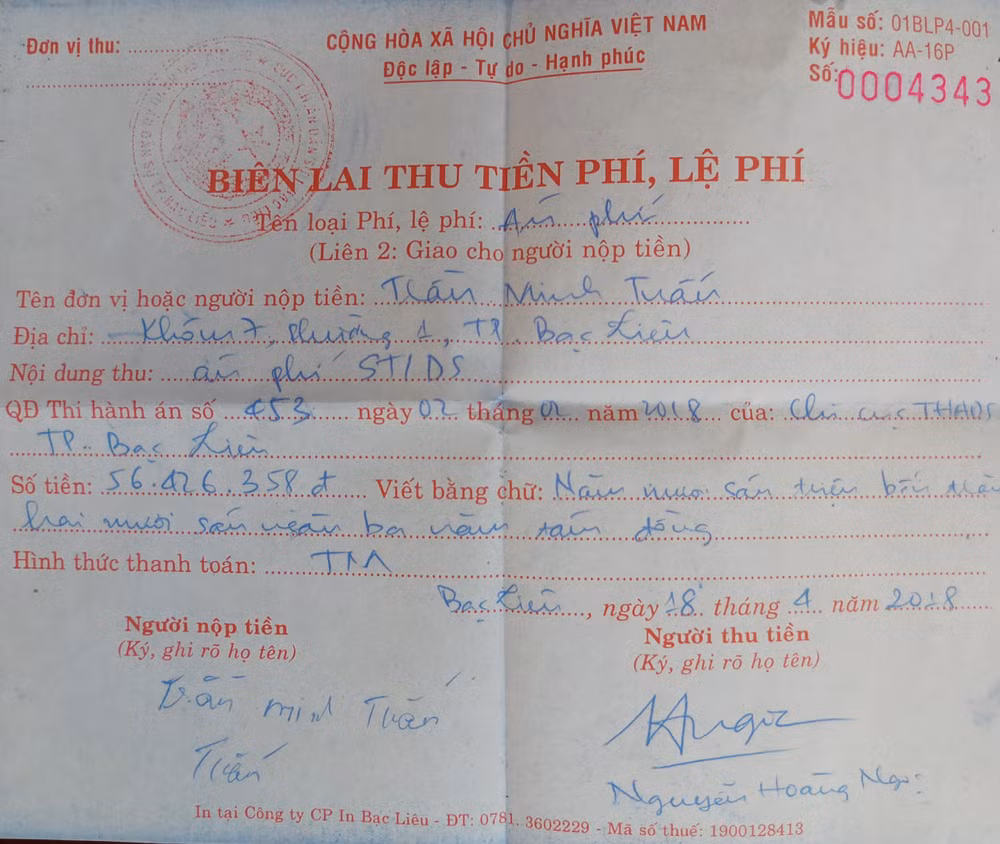 Đơn vị thu: ........................
CỘNG HÒA XÃ HỘI CHỦ NGHĨA VIỆT NAM
Độc lập - Tự do - Hạnh phúc
Mẫu số: 01BLP4-001
Ký hiệu: AA-16P
Số: 0004343
BIÊN LAI THU TIỀN PHÍ, LỆ PHÍ
Tên loại Phí, lệ phí: Án phí
(Liên 2: Giao cho người nộp tiền)
Tên đơn vị hoặc người nộp tiền: Trần Minh Tuấn
Địa chỉ: Khóm 7, Phường 1, TP. Bạc Liêu
Nội dung thu: án phí STDS
QĐ Thi hành án số 453 ngày 02 tháng 02 năm 2018 của: Chi cục THADS
TP. Bạc Liêu
Số tiền: 56.426.358 đ Viết bằng chữ: Năm mươi sáu triệu bốn trăm
hai mươi sáu ngàn ba năm tám đồng
Hình thức thanh toán: TM
Bạc Liêu, ngày 18 tháng 4 năm 2018
Người nộp tiền
(Ký, ghi rõ họ tên)
Trần Minh Tuấn
Người thu tiền
(Ký, ghi rõ họ tên)
Nguyễn Hoàng
In tại Công ty CP In Bạc Liêu - ĐT: 0781. 3602229 - Mã số thuế: 1900128413